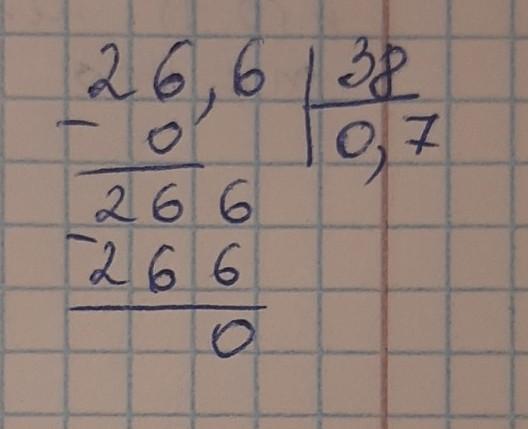 26,6 | 38
- 0 | 0,7
266
- 266
0